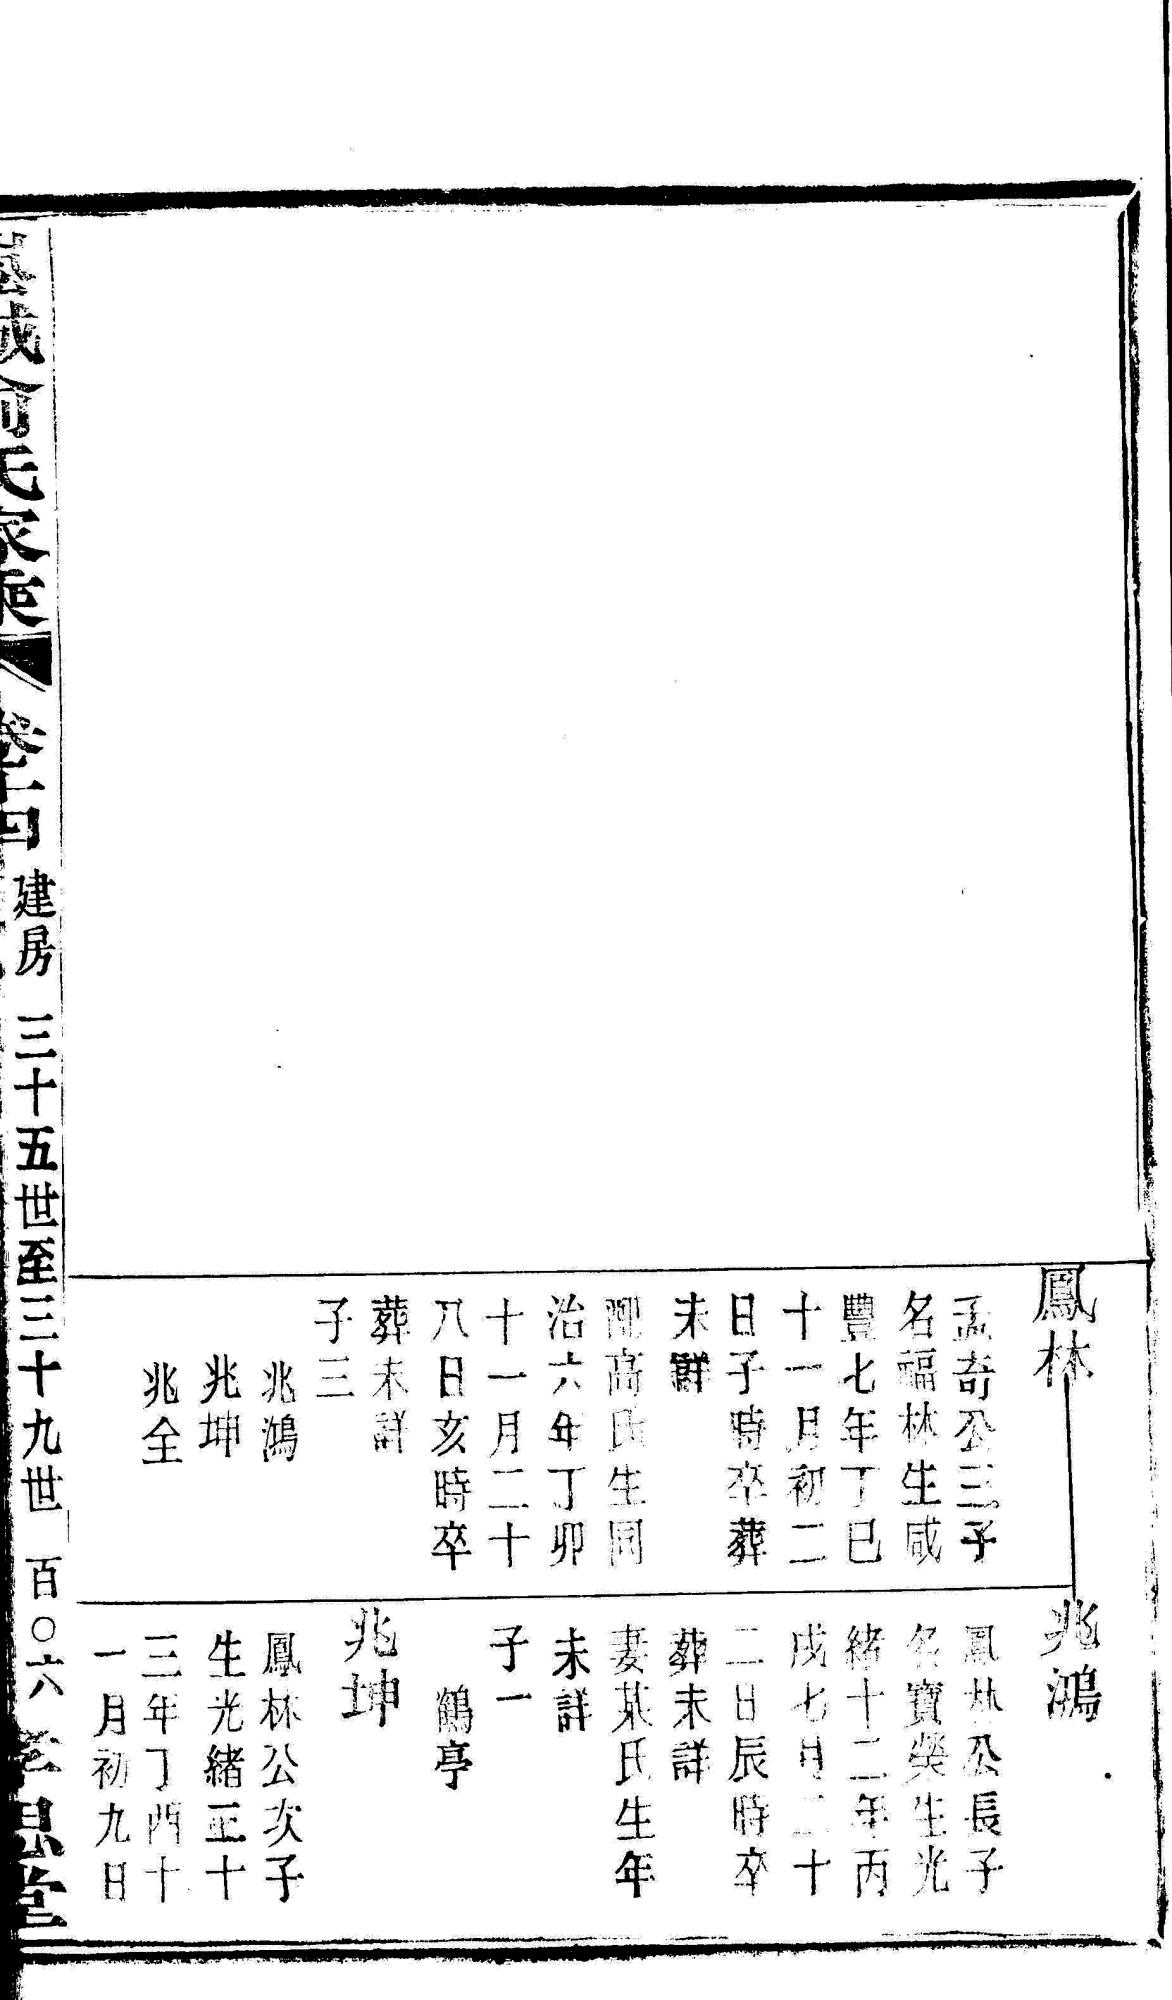 鳳林
孟奇公三子
名福林生咸
豐七年丁巳
十一月初二
日子時卒葬
未詳
配高氏生同
治六年丁卯
十一月二十
八日亥時卒
葬未詳
子三
兆鴻
兆坤
兆全
兆鴻
鳳林公長子
名寶榮生光
緒十二年丙
戌七月二十
二日辰時卒
葬未詳
妻某氏生年
未詳
子一
鶴亭
兆坤
鳳林公次子
生光緒二十
三年丁酉十
一月初九日
城俞氏家乘
卷十四
建房
三十五世至三十九世
百〇六
孝思堂